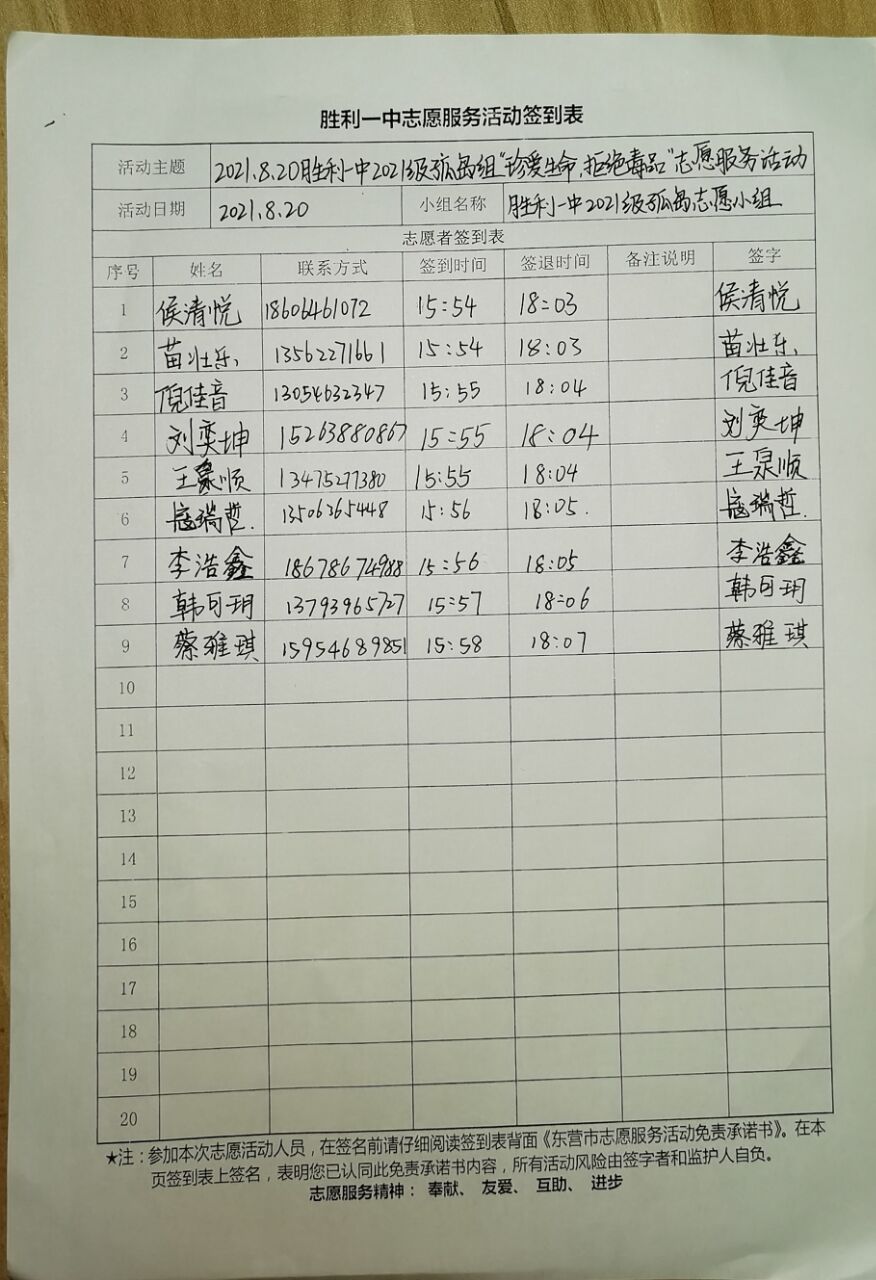 胜利一中志愿服务活动签到表
活动主题 2021.8.20胜利一中2021级孤岛组"珍爱生命,拒绝毒品"志愿服务活动
活动日期 2021.8.20 小组名称 胜利一中2021级孤岛志愿小组
志愿者签到表
序号 姓名 联系方式 签到时间 签退时间 备注说明 签字
1 侯清悦 18606461072 15:54 18:03 侯清悦
2 苗壮乐 13562271661 15:54 18:03 苗壮乐
3 倪佳音 13054632347 15:55 18:04 倪佳音
4 刘奕坤 15263880867 15:55 18:04 刘奕坤
5 王泉顺 13475277380 15:55 18:04 王泉顺
6 寇瑞哲. 13506365448 15:56 18:05. 寇瑞哲.
7 李浩鑫 18678674988 15:56 18:05 李浩鑫
8 韩可玥 13793965727 15:57 18:06 韩可玥
9 蔡雅琪 15954689851 15:58 18:07 蔡雅琪
10
11
12
13
14
15
16
17
18
19
20
★注:参加本次志愿活动人员,在签名前请仔细阅读签到表背面《东营市志愿服务活动免责承诺书》。在本
页签到表上签名,表明您已认同此免责承诺书内容,所有活动风险由签字者和监护人自负。
志愿服务精神: 奉献、 友爱、 互助、 进步